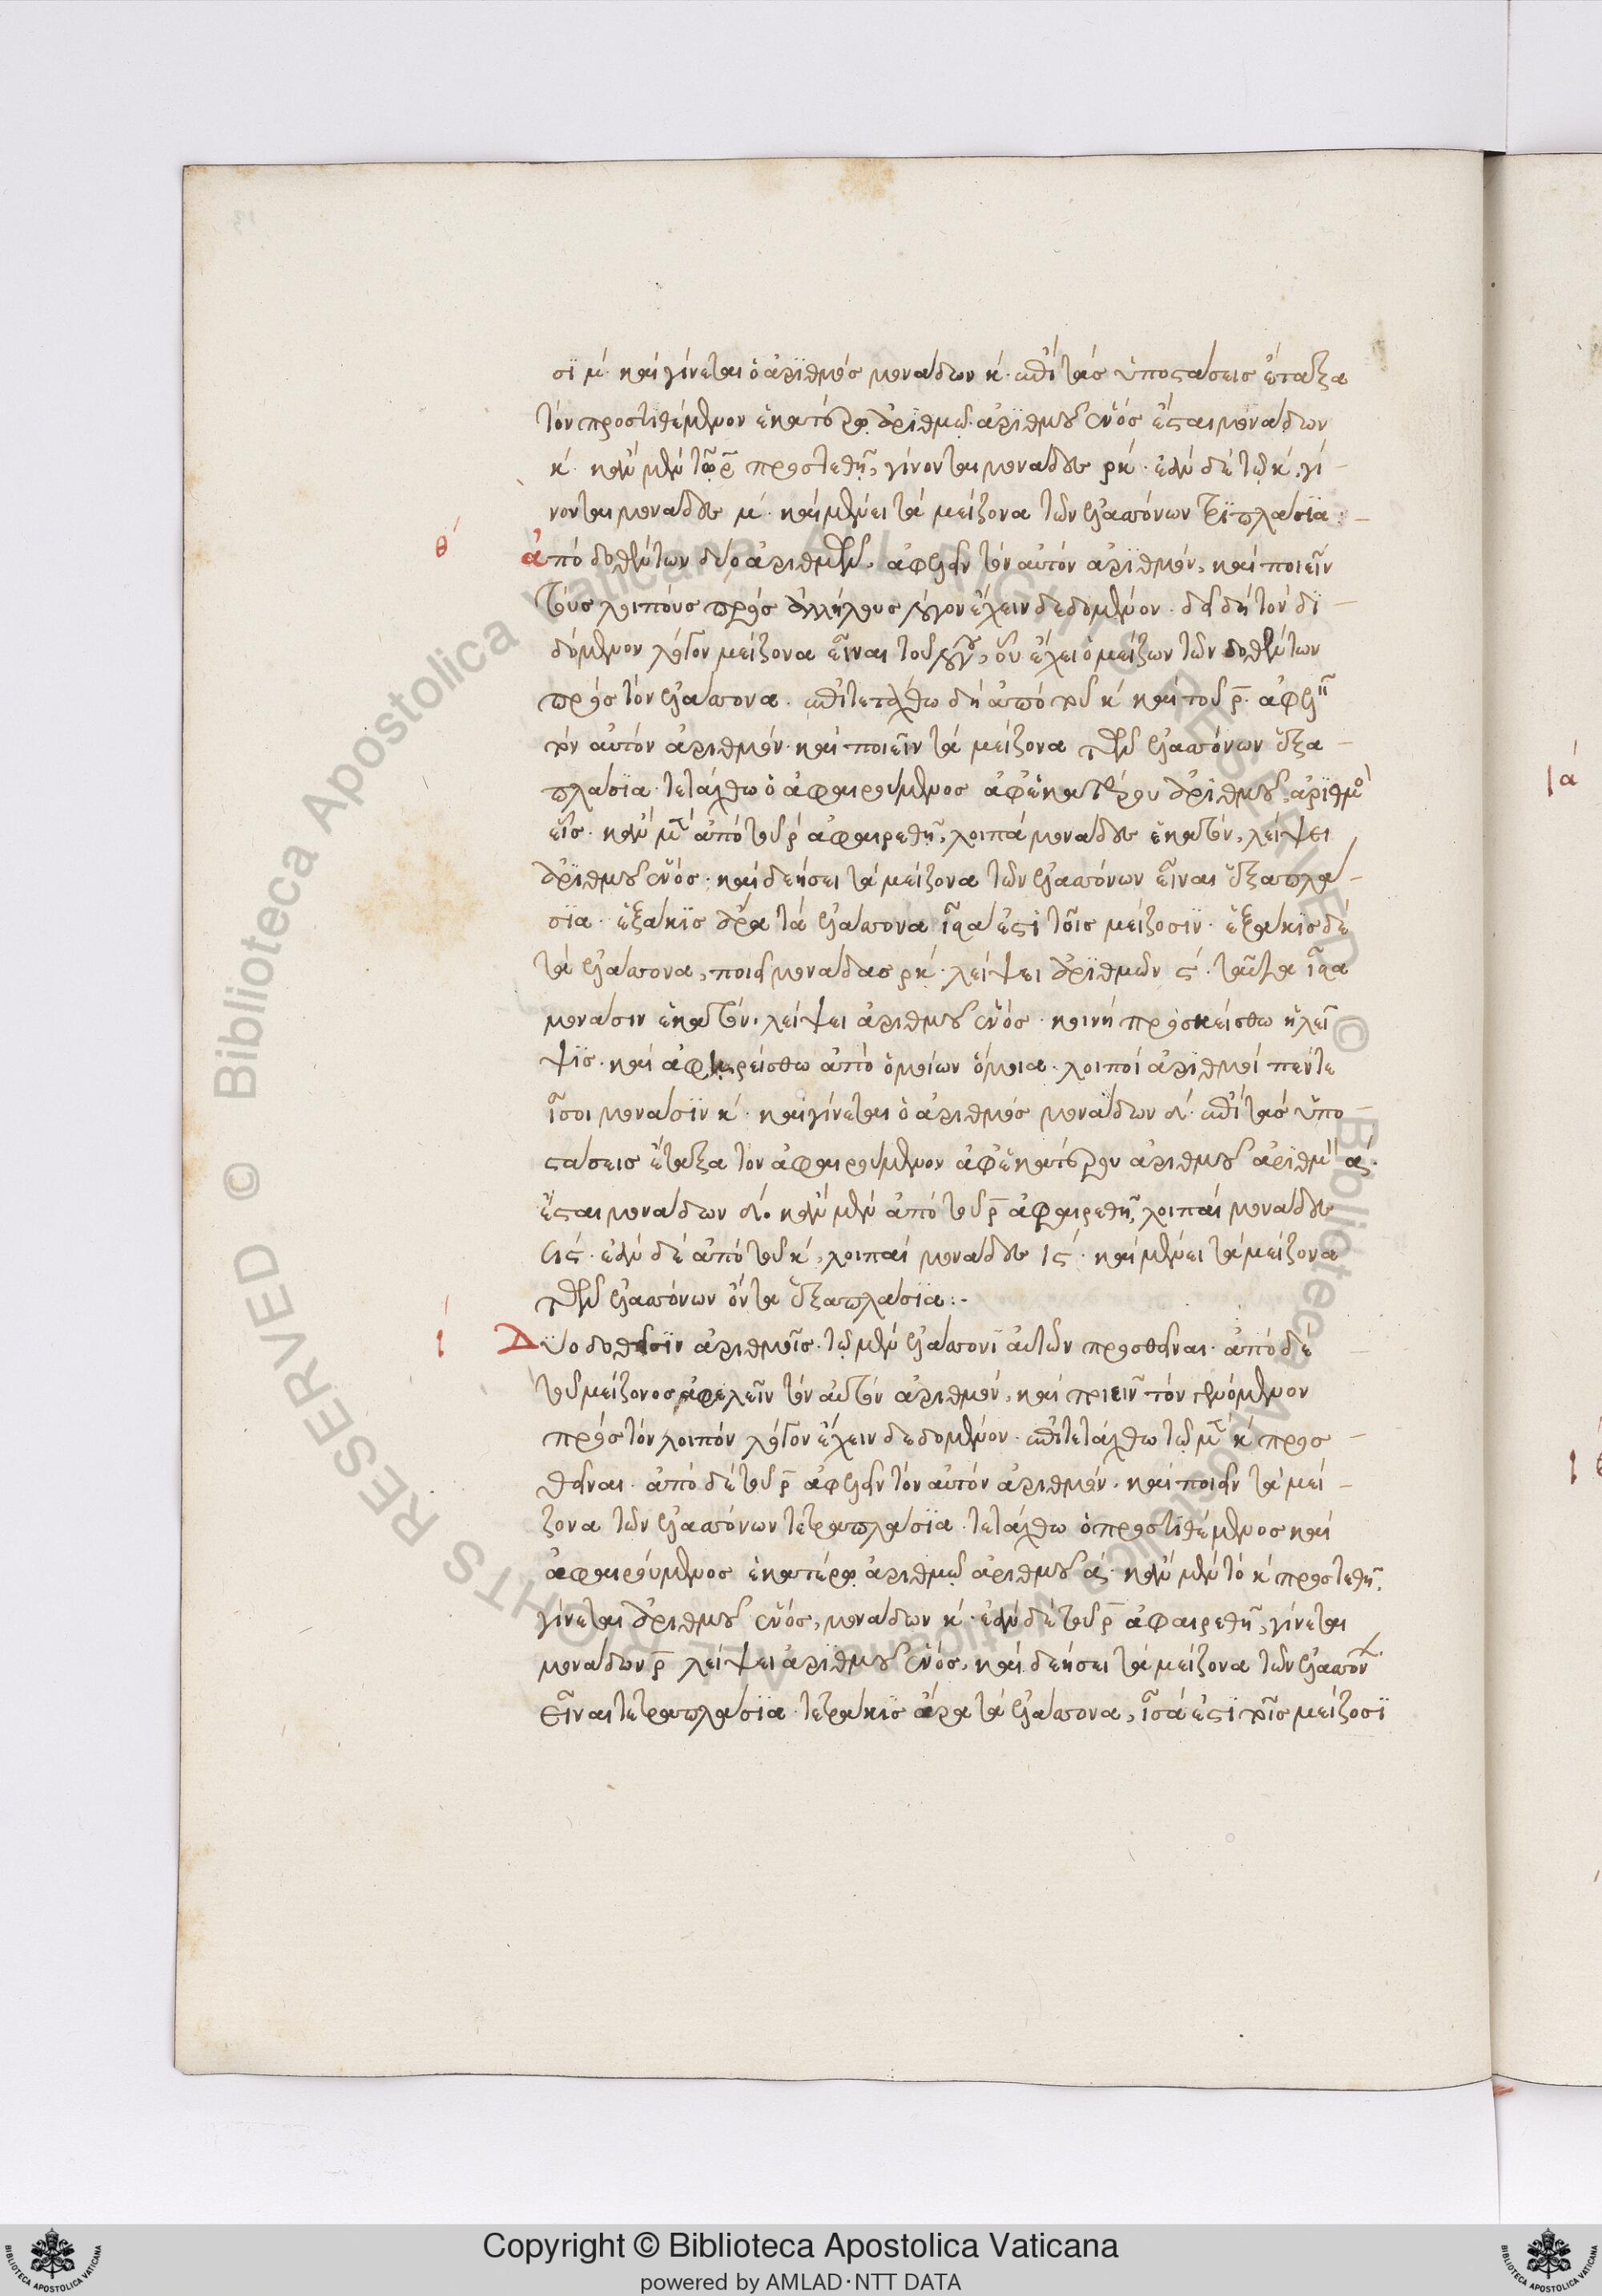 σϊ μ́· καὶ γίνεται ὁ ἀριθμὸς μονάδων κ́· ἐπὶ τὰς ὑποστάσεις ἔταξα
τὸν προστιθέμενον ἑκατέρῳ ἀριθμῷ ἀριθμοῦ ἑνός ἔσται μονάδων
κ́· κἂν μὲν τῷ ρ̄ προστεθῇ, γίνονται μονάδες ρκ́· ἐὰν δὲ τῷ κ́, γί–
νονται μονάδες μ́· καὶ μένει τὰ μείζονα τῶν ἐλασσόνων τριπλασία:–
θ´ ἀπὸ δοθέντων δύο ἀριθμῶν, ἀφελεῖν τὸν αὐτὸν ἀριθμόν, καὶ ποιεῖν
τοὺς λοιποὺς πρὸς ἀλλήλους λόγον ἔχειν δεδομένον· δεῖ δὴ τὸν δι–
δόμενον λόγον μείζονα εἶναι τοῦ λόγου, οὗ ἔχει ὁ μείζων τῶν δοθέντων
πρὸς τὸν ἐλάσσονα· ἐπιτετάχθω δὴ ἀπὸ τοῦ κ́ καὶ τοῦ ρ̄· ἀφελεῖν
τὸν αὐτὸν ἀριθμόν· καὶ ποιεῖν τὰ μείζονα τῶν ἐλασσόνων ἑξα–
πλασία· τετάχθω ὁ ἀφαιρούμενος ἀφ᾽ ἑκατέρου ἀριθμοῦ, ἀριθμὸ
εἷς· κἂν μὲν ἀπὸ τοῦ ρ́ ἀφαιρεθῇ, λοιπὰ μονάδες ἑκατόν, λείψει
ἀριθμοῦ ἑνός· καὶ δεήσει τὰ μείζονα τῶν ἐλασσόνων εἶναι ἑξαπλα–
σία· ἑξάκις ἄρα τὰ ἐλάσσονα ἴσα ἐστὶ τοῖς μείζοσιν· ἑξάκις δὲ
τὰ ἐλάσσονα, ποιεῖ μονάδας ρκ́· λείψει ἀριθμῶν ϛ́· ταῦτα ἴσα
μονάσιν ἑκατόν, λείψει ἀριθμοῦ ἑνός· κοινὴ προσκείσθω ἡ λεῖ
ψις· καὶ ἀφῃρείσθω ἀπὸ ὁμοίων ὅμοια· λοιποὶ ἀριθμοὶ πέντε
ἴσοι μονάσιν κ́· καὶ γίνεται ὁ ἀριθμὸς μονάδων δ́· ἐπὶ τὰς ὑπο–
στάσεις ἔταξα τὸν ἀφαιρούμενον ἀφ᾽ ἑκατέρου ἀριθμοῦ ἀριθμ ά·
ἔσται μονάδων δ́· κἂν μὲν ἀπὸ τοῦ ρ̄ ἀφαιρεθῇ, λοιπαὶ μονάδες
ϟϛ́· ἐὰν δὲ ἀπὸ τοῦ κ́, λοιπαὶ μονάδες ιϛ́· καὶ μένει τὰ μείζονα
τῶν ἐλασσόνων ὄντα ἑξαπλασία:–
ι´ Δύο δοθεῖσιν ἀριθμοῖς· τῷ μὲν ἐλάσσονι αὐτῶν προσθεῖναι· ἀπὸ δὲ
τοῦ μείζονος ἀφελεῖν τὸν αὐτὸν ἀριθμόν, καὶ ποιεῖν τὸν γενόμενον
πρὸς τὸν λοιπὸν λόγον ἔχειν δεδομένον· ἐπιτετάχθω τῷ μὲν κ́ προσ–
θεῖναι· ἀπὸ δὲ τοῦ ρ̄ ἀφελεῖν τὸν αὐτὸν ἀριθμόν· καὶ ποιεῖν τὰ μεί–
ζονα τῶν ἐλασσόνων τετραπλασία· τετάχθω ὁ προστιθέμενος καὶ
ἀφαιρούμενος ἑκατέρῳ ἀριθμῷ ἀριθμοῦ ά· κἂν μὲν τὸ κ́ προστεθῇ,
γίνεται ἀριθμοῦ ἑνός, μονάδων κ́· ἐὰν δὲ τοῦ ρ̄ ἀφαιρεθῇ, γίνεται
μονάδων ρ̄ λείψει ἀριθμοῦ ἑνός, καὶ δεήσει τὰ μείζονα τῶν ἐλασσόν
εἶναι τετραπλασία· τετράκις ἄρα τὰ ἐλάσσονα, ἴσα ἐστὶ τοῖς μείζοσι
ια´
Copyright © Biblioteca Apostolica Vaticana
powered by AMLAD·NTT DATA